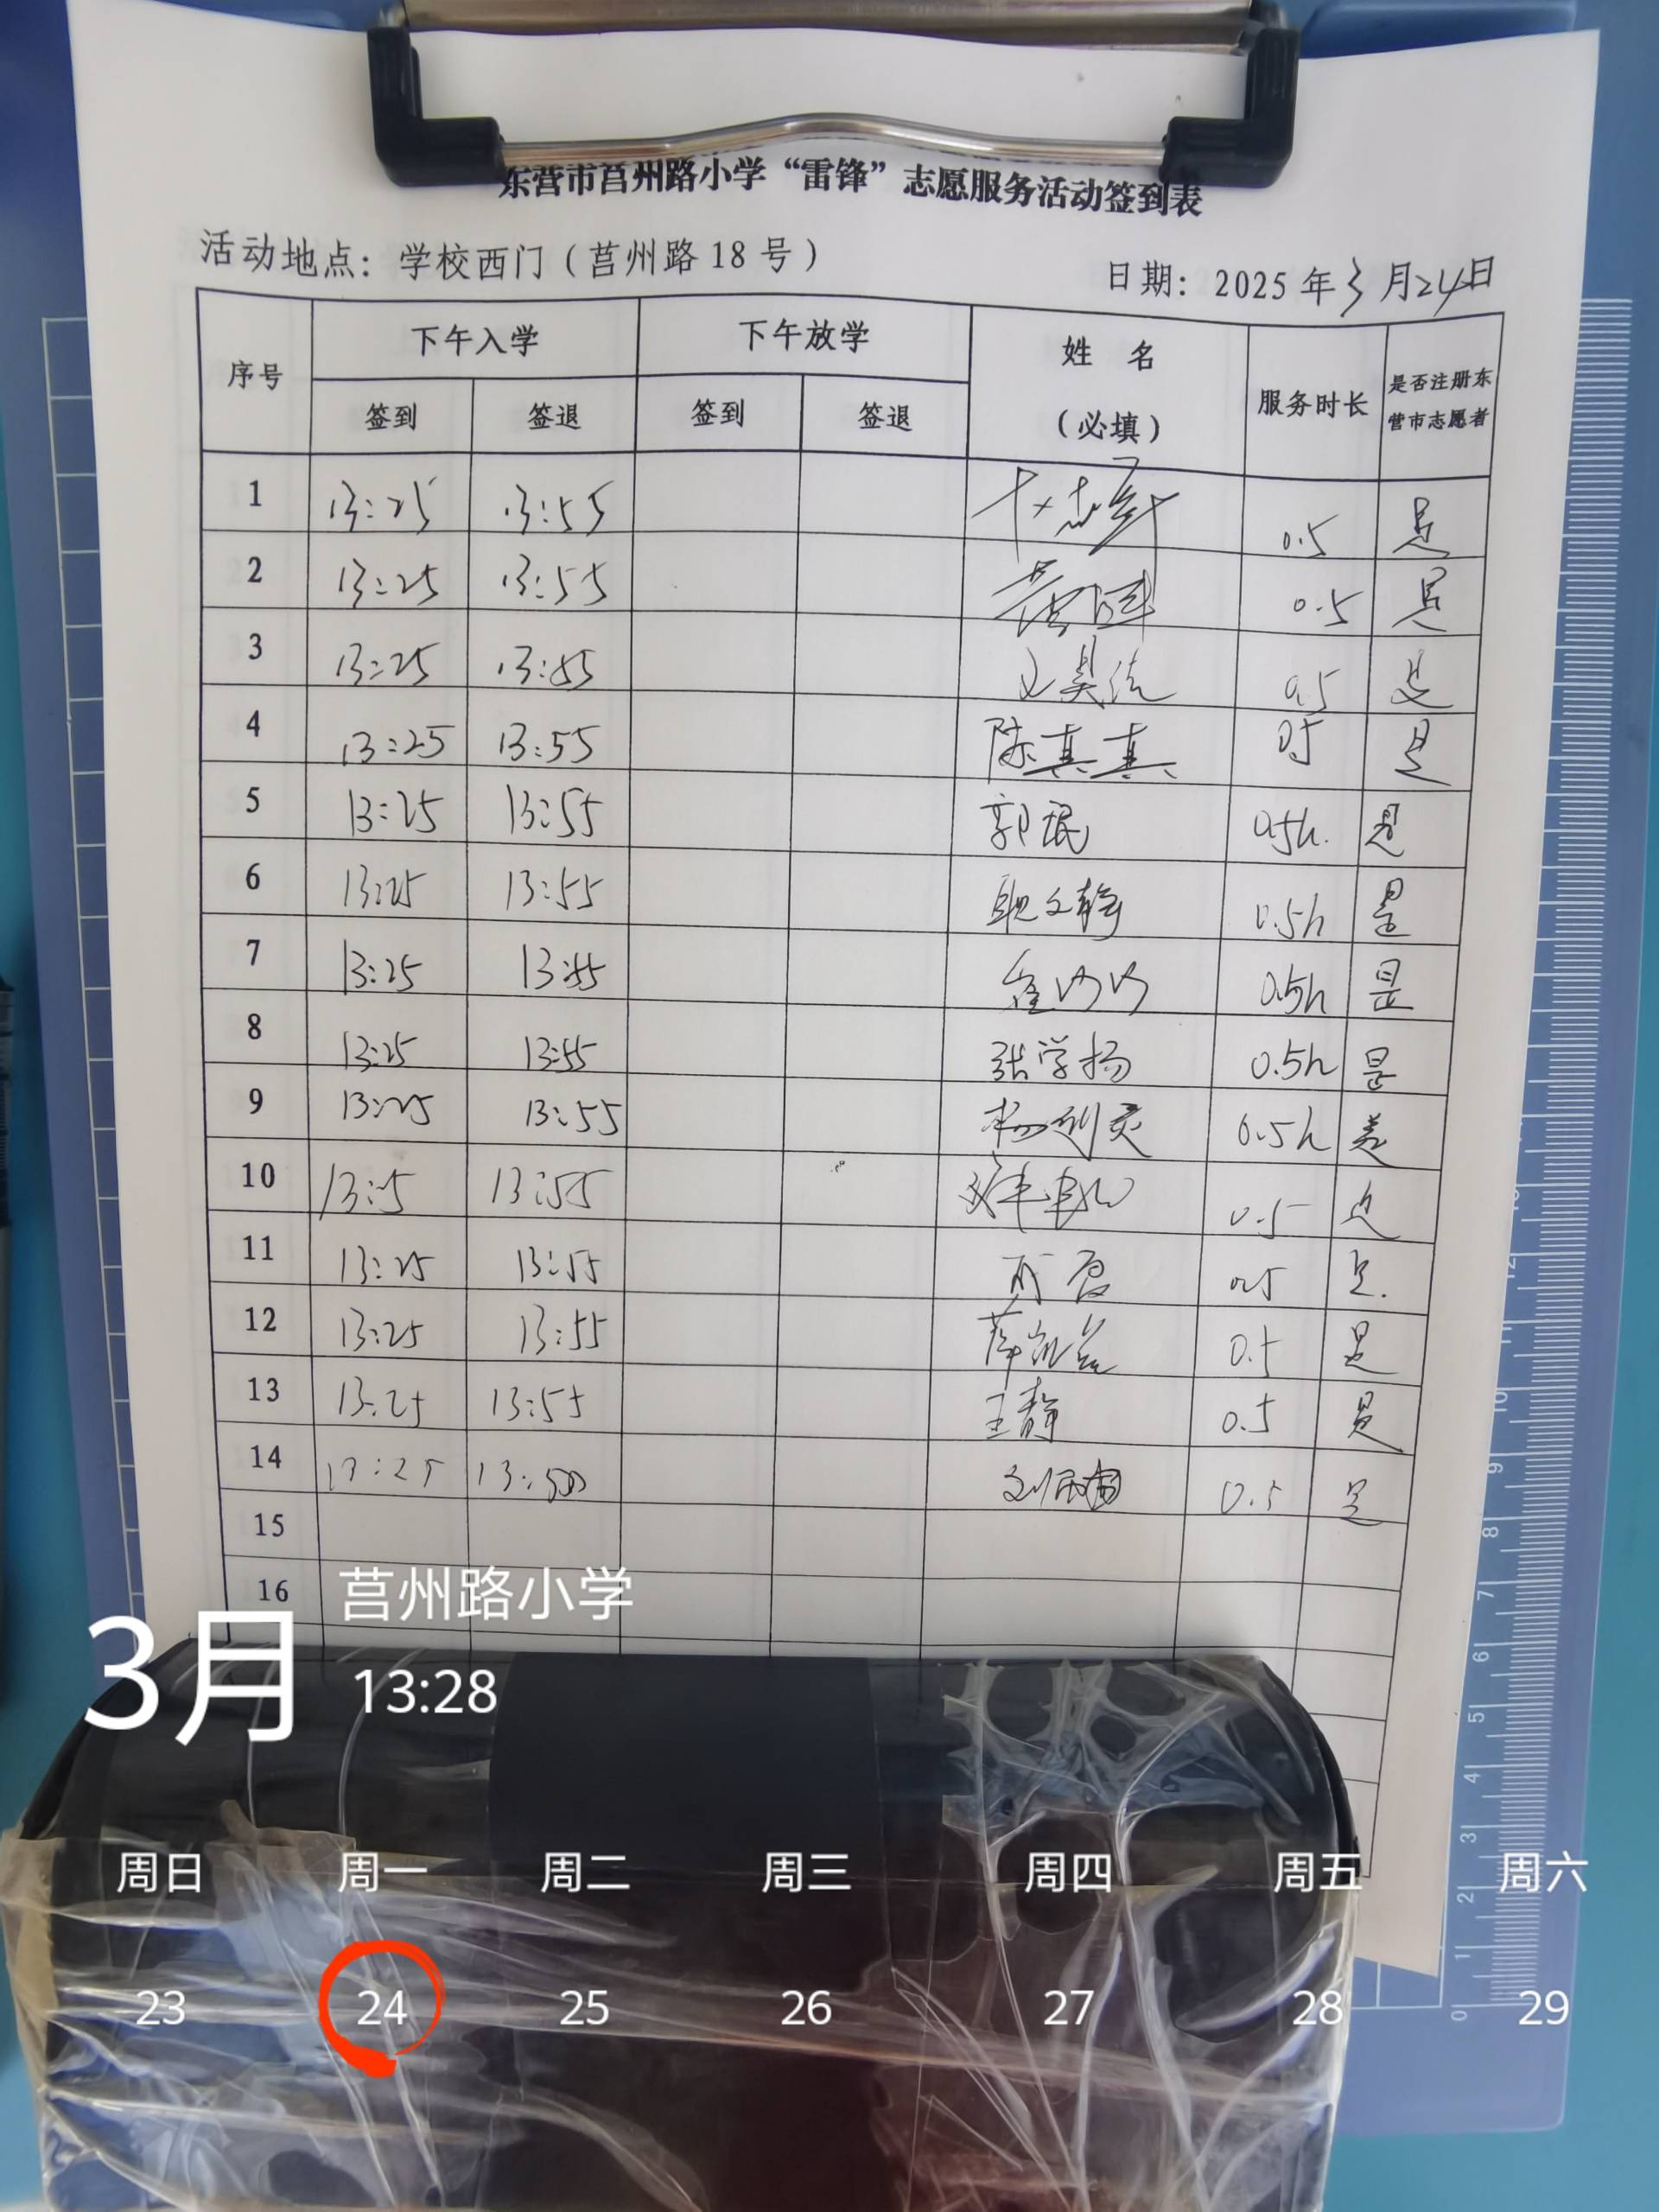 东营市莒州路小学“雷锋”志愿服务活动签到表
活动地点：学校西门（莒州路18号）
日期：2025年3月24日
序号 下午入学 下午放学 姓名（必填） 服务时长 是否注册东营市志愿者
签到 签退 签到 签退
1 13:25 13:55 0.5 是
2 13:25 13:55 0.5 是
3 13:25 13:55 0.5 是
4 13:25 13:55 陈真真 0.5 是
5 13:25 13:55 郭珉 0.5h. 是
6 13:25 13:55 耿文静 0.5h 是
7 13:25 13:55 0.5h 是
8 13:25 13:55 张学扬 0.5h 是
9 13:25 13:55 0.5h 是
10 13:55 0.5 是
11 13:25 13:55 0.5 是.
12 13:25 13:55 0.5 是
13 13:25 13:55 王静 0.5 是
14 13:25 0.5 是
15
16
莒州路小学
3月 13:28
周日 周一 周二 周三 周四 周五 周六
23 24 25 26 27 28 29